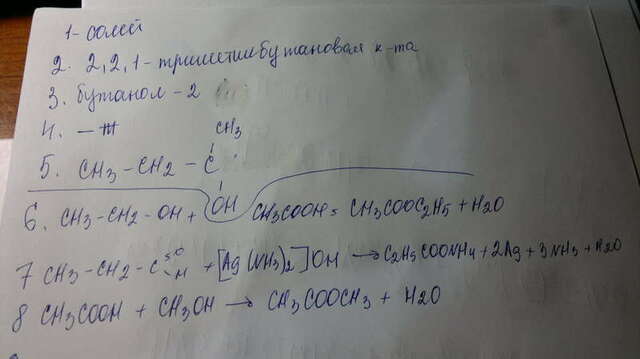 1 - солей
2. 2,2,1 - триметилбутановая к-та
3. бутанол - 2
4. -
CH3
5. CH3 - CH2 - C
OH
6. CH3 - CH2 - OH + CH3COOH = CH3COOC2H5 + H2O
7 CH3 - CH2 - C =O - H + [Ag(NH3)2]OH → C2H5COONH4 + 2Ag + 3NH3 + H2O
8 CH3COOH + CH3OH → CH3COOCH3 + H2O